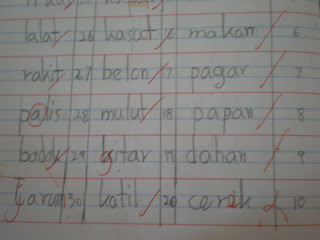 lalat 26 kasat 16 makan 6
rakit 27 belon 17 pagar 7
palis 28 mulut 18 papan 8
badak 29 gitar 19 dahan 9
jarum 30 katil 20 cerek 10